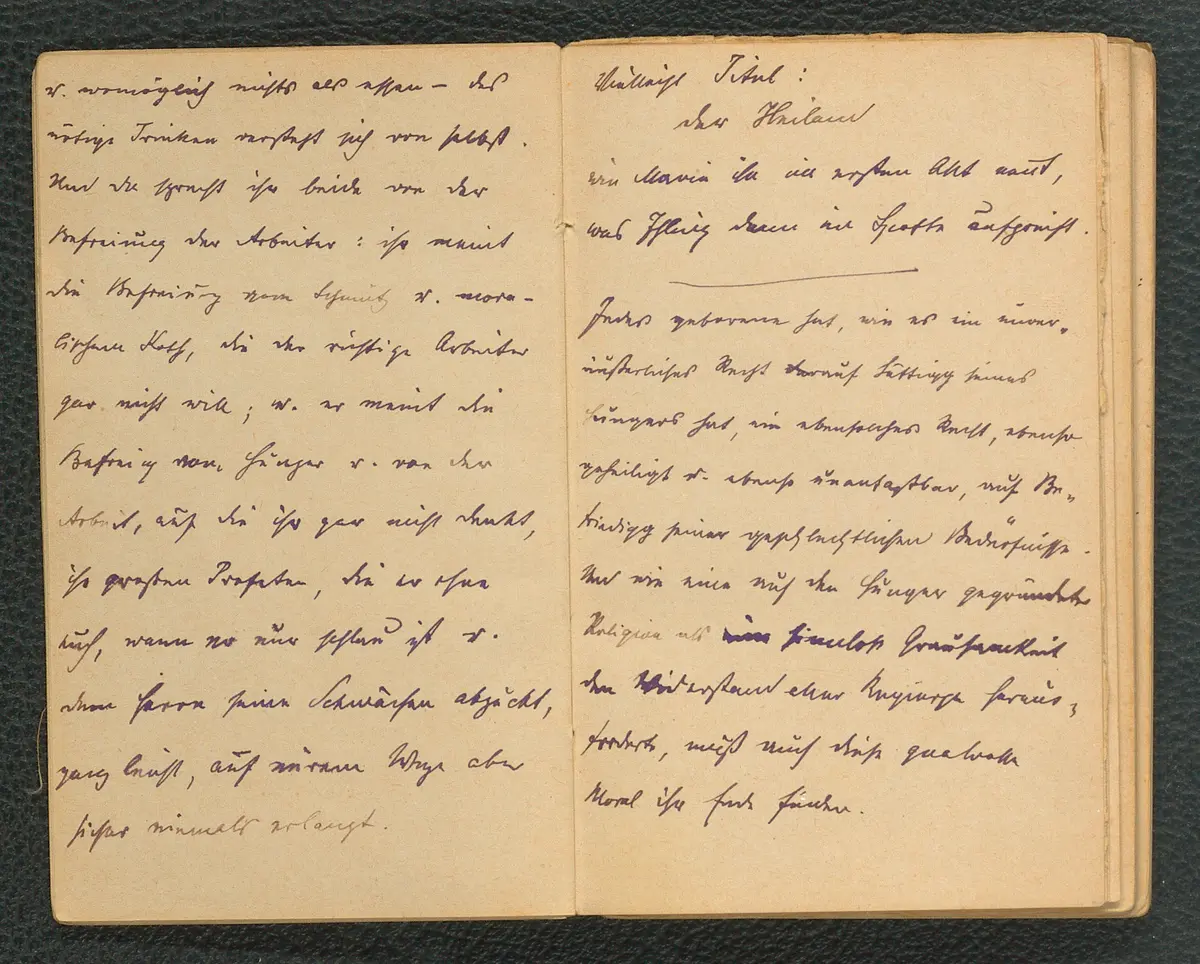 u. womöglich nichts als essen – das
nötige Trinken versteht sich von selbst.
Und da sprecht ihr beide von der
Befreiung der Arbeiter: ihr meint
die Befreiung vom Schmutz u. mora-
lischem Koth, die der richtige Arbeiter
gar nicht will; u. er meint die
Befreig vom Hunger u. von der
Arbeit, auf die ihr gar nicht denkt,
ihr großen Profeten, die er ohne
euch, wenn er nur schlau ist u.
dem Herrn seine Schwächen abguckt,
ganz leicht, auf eurem Wege aber
sicher niemals erlangt.
Vielleicht Titel:
der Heiland
wie Maria ihn im ersten Akt nennt,
was dann im Spotte aufgreift.
Jedes geborene hat, wie es ein unver-
äußerliches Recht darauf Sättigg seines
Hungers hat, ein ebensolches Recht, ebenso
geheiligt u. ebenso unantastbar, auf Be-
friedigg seiner geschlechtlichen Bedürfnisse.
Und wie eine auf den Hunger gegründete
Religion als sinnlose Grausamkeit
den Widerstand aller heraus-
forderte, muß auch diese qualvolle
Moral ihr Ende finden.